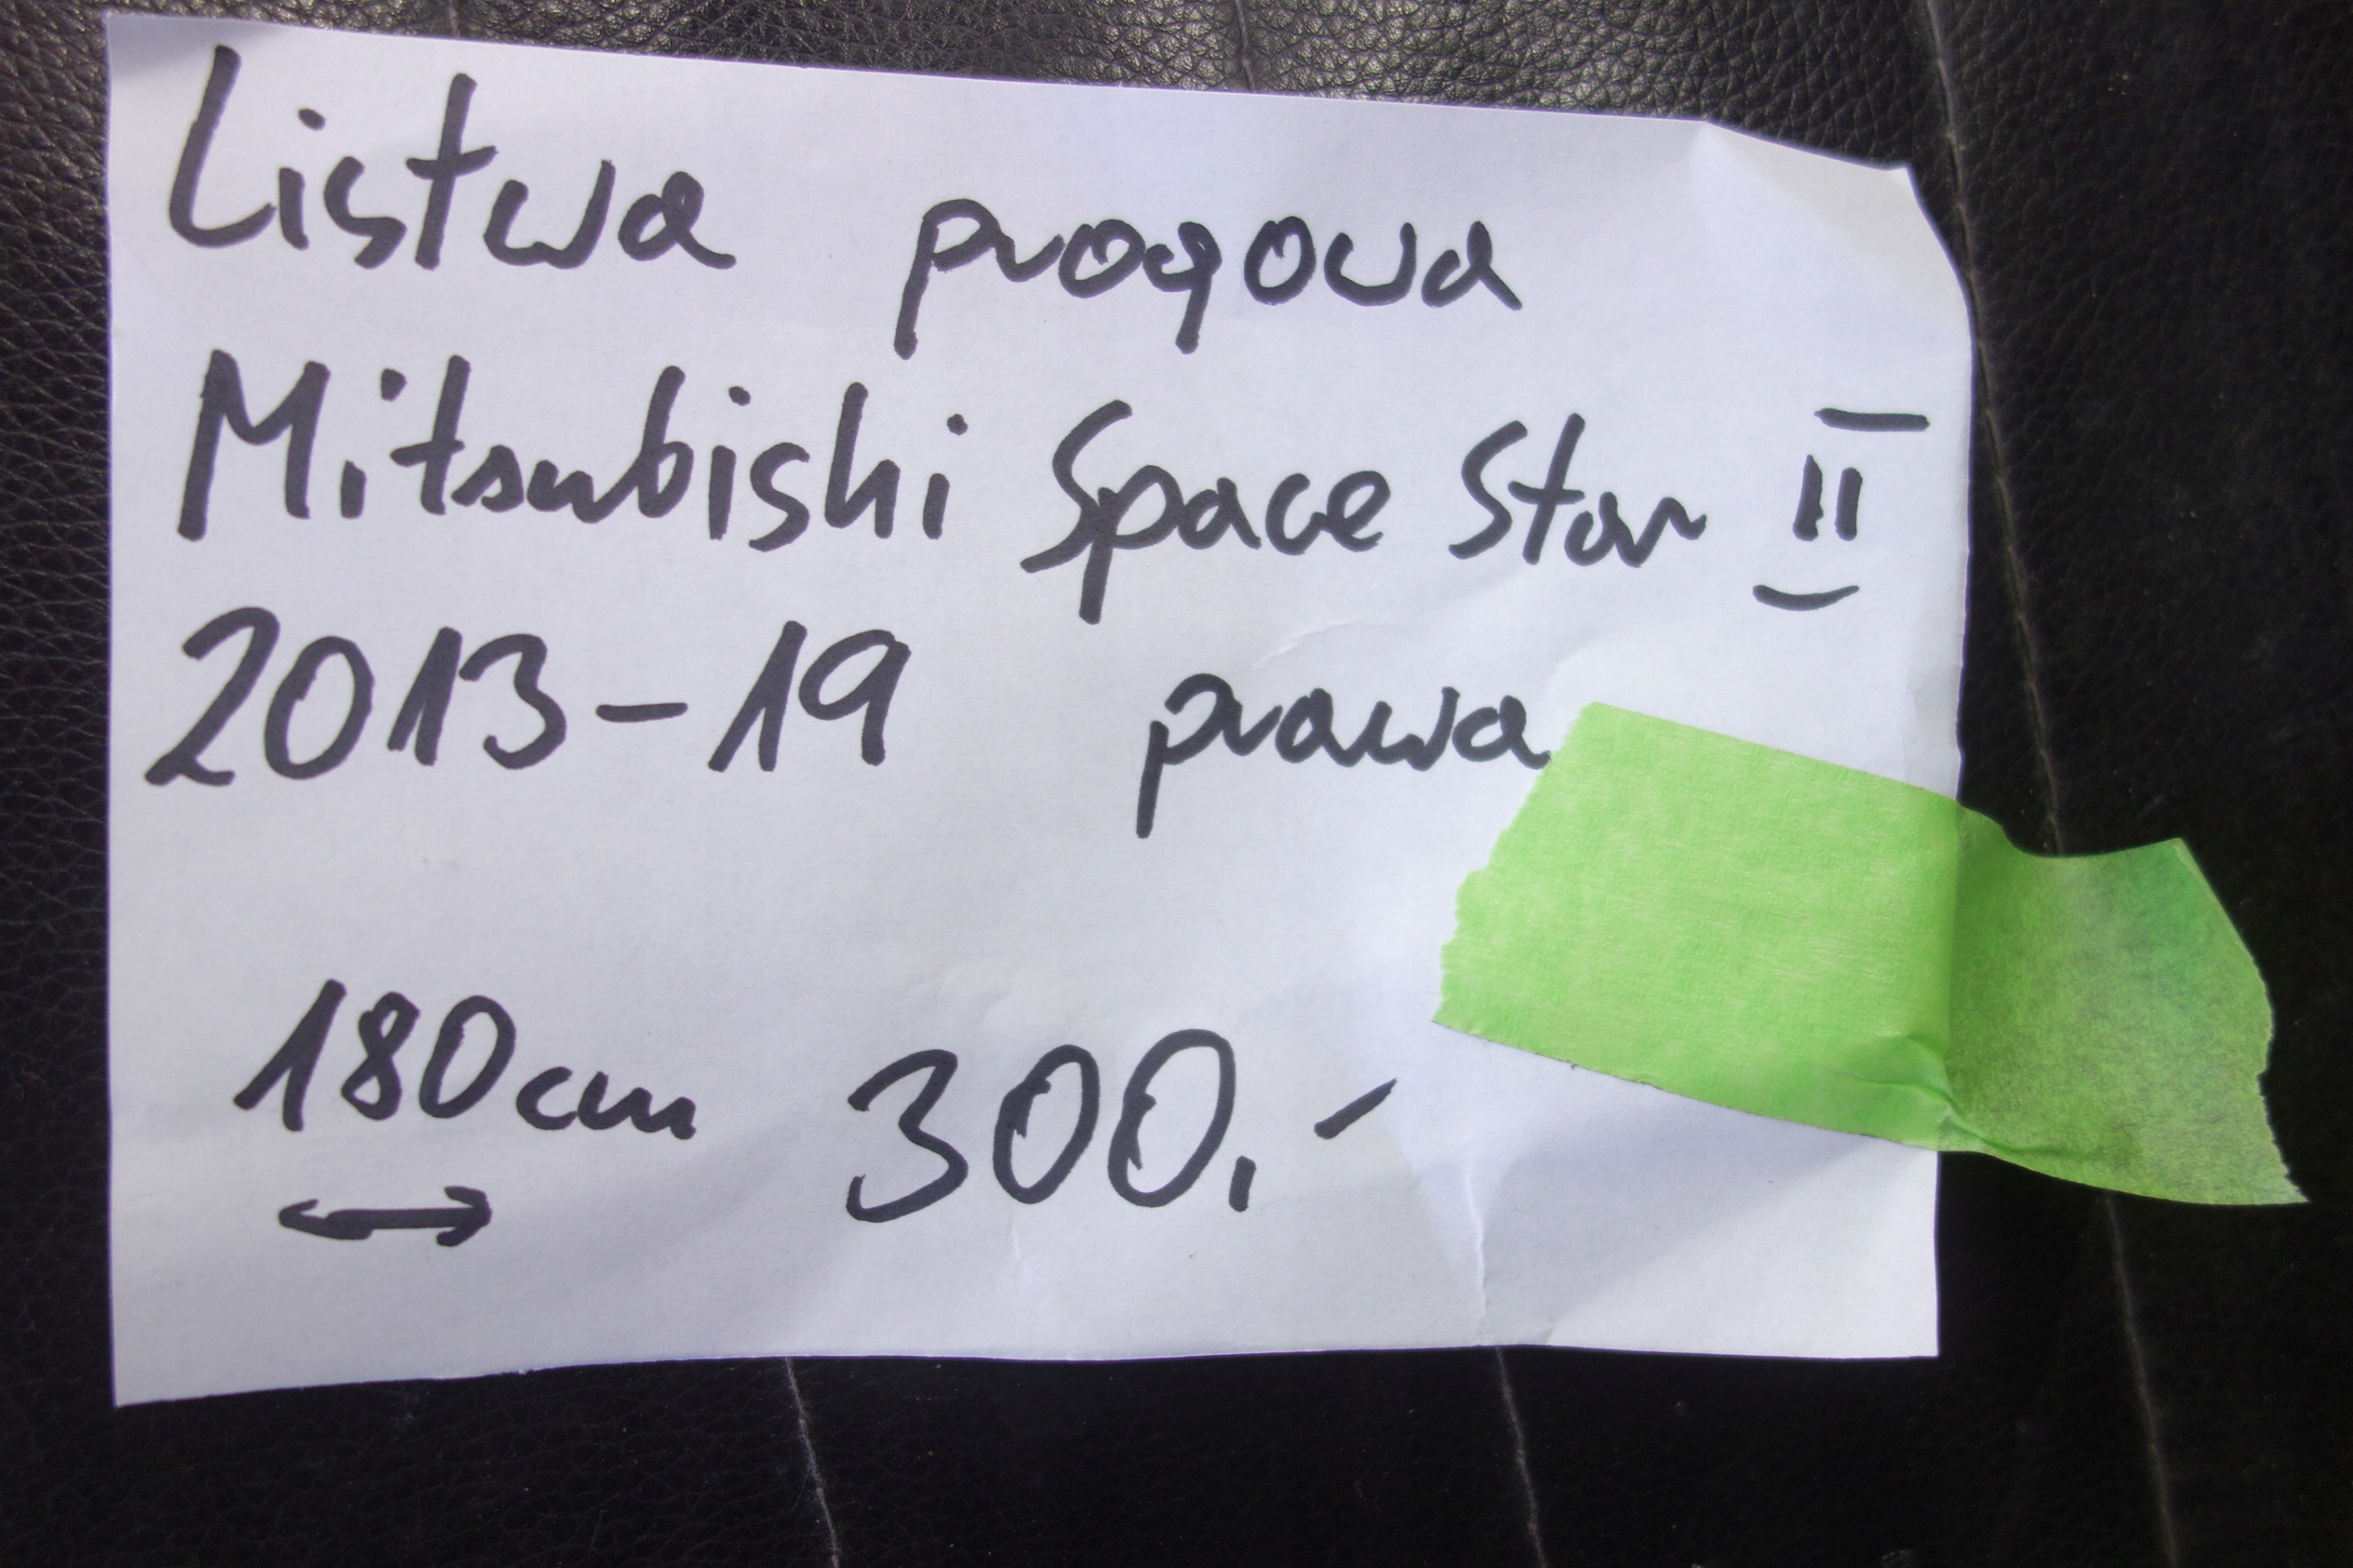 Listwa progowa
Mitsubishi Space Star II
2013-19 prawa
180cm 300.-